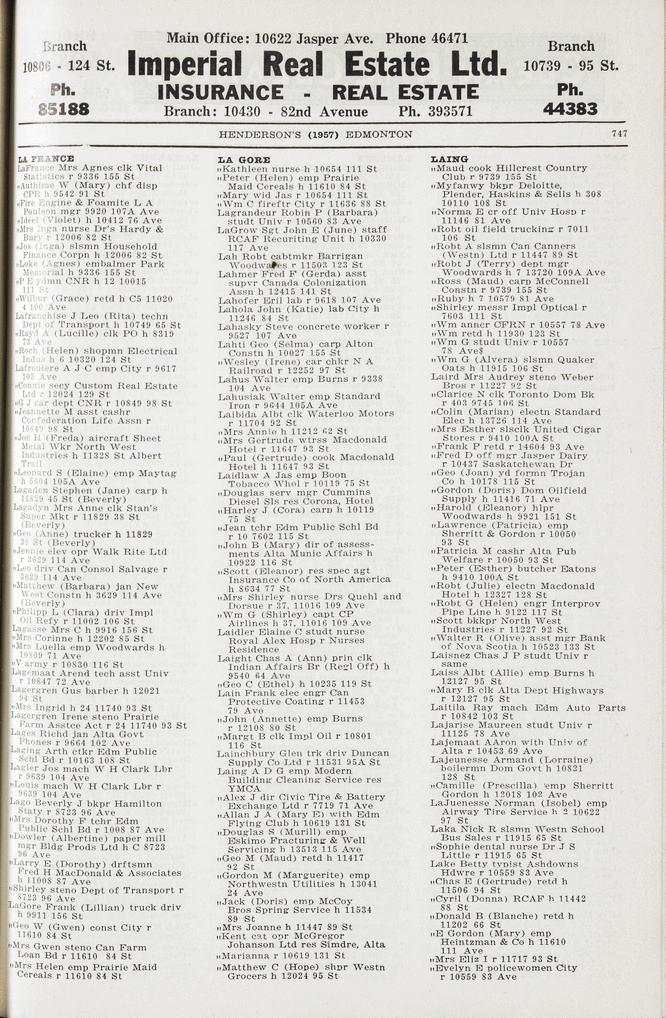 Main Office: 10622 Jasper Ave. Phone 46471
Branch
10806 - 124 St.
Ph.
85188
Imperial Real Estate Ltd.
INSURANCE - REAL ESTATE
Branch: 10430 - 82nd Avenue Ph. 393571
Branch
10739 - 95 St.
Ph.
44383
HENDERSON'S (1957) EDMONTON
747
LA FRANCE
LaFrance Mrs Agnes clk Vital
Statistics r 9336 155 St
"Authime W (Mary) chf disp
CPR h 9542 91 St
"Fire Engine & Foamite L A
Poulson mgr 9920 107A Ave
"Ideel (Violet) h 10412 76 Ave
"Mrs Inga nurse Dr's Hardy &
Bury r 12006 82 St
"Jos (Inga) slsmn Household
Finance Corpn h 12006 82 St
"Loke (Agnes) embalmer Park
Memorial h 9336 155 St
"P E ydmn CNR h 12 10015
111 St
"Wilbur (Grace) retd h C5 11020
4 100 Ave
Lafranchise J Leo (Rita) techn
Dept of Transport h 10749 65 St
"Rayd A (Lucille) clk PO h 8319
73 Ave
"Roch (Helen) shopmn Electrical
Indus h 6 10320 124 St
Lafreniere A J C emp City r 9617
102 Ave
"Connie secy Custom Real Estate
Ltd r 12024 129 St
"G J car dept CNR r 10849 98 St
"Jeannette M asst cashr
Confederation Life Assn r
10849 98 St
"Jos H (Freda) aircraft Sheet
Metal Wkr North West
Industries h 11328 St Albert
Trail
"Leonard S (Elaine) emp Maytag
h 5604 105A Ave
Lagaden Stephen (Jane) carp h
11829 45 St (Beverly)
Lagadyn Mrs Anne clk Stan's
Super Mkt r 11829 38 St
(Beverly)
"Geo (Anne) trucker h 11829
38 St (Beverly)
"Jennie elev opr Walk Rite Ltd
r 3629 114 Ave
"Leo driv Can Consol Salvage r
3629 114 Ave
"Matthew (Barbara) jan New
West Constn h 3629 114 Ave
(Beverly)
"Philipp L (Clara) driv Impl
Oil Refy r 11002 106 St
Lagasse Mrs C h 9916 156 St
"Mrs Corinne h 12202 85 St
"Mrs Luella emp Woodwards h
10809 71 Ave
"V army r 10830 116 St
Lagemaat Arend tech asst Univ
r 10847 72 Ave
Lagergren Gus barber h 12021
94 St
"Mrs Ingrid h 24 11740 93 St
Lagergren Irene steno Prairie
Farm Asstce Act r 24 11740 93 St
Lages Richd jan Alta Govt
Phones r 9664 102 Ave
Laging Arth ctkr Edm Public
Schl Bd r 10163 108 St
Lagler Jos mach W H Clark Lbr
r 9639 104 Ave
"Louis mach W H Clark Lbr r
9639 104 Ave
Lago Beverly J bkpr Hamilton
Staty r 8723 96 Ave
"Mrs Dorothy F tchr Edm
Public Schl Bd r 1008 87 Ave
"Dowler (Albertine) paper mill
mgr Bldg Prods Ltd h C 8723
96 Ave
"Larry E (Dorothy) drftsmn
Fred H MacDonald & Associates
h 11008 87 Ave
"Shirley steno Dept of Transport r
8723 96 Ave
LaGore Frank (Lillian) truck driv
h 9911 156 St
"Geo W (Gwen) const City r
11610 84 St
"Mrs Gwen steno Can Farm
Loan Bd r 11610 84 St
"Mrs Helen emp Prairie Maid
Cereals r 11610 84 St
LA GORE
"Kathleen nurse h 10654 111 St
"Peter (Helen) emp Prairie
Maid Cereals h 11610 84 St
"Mary wid Jas r 10654 111 St
"Wm C fireftr City r 11636 88 St
Lagrandeur Robin P (Barbara)
studt Univ r 10560 83 Ave
LaGrow Sgt John E (June) staff
RCAF Recruting Unit h 10330
117 Ave
Lah Robt cabtmkr Barrigan
Woodwares r 11503 123 St
Lahmer Fred F (Gerda) asst
supvr Canada Colonization
Assn h 12415 141 St
Lahofer Eril lab r 9618 107 Ave
Lahola John (Katie) lab City h
11246 84 St
Lahasky Steve concrete worker r
9527 107 Ave
Lahti Geo (Selma) carp Alton
Constn h 10027 155 St
"Wesley (Irene) car chkr N A
Railroad r 12252 97 St
Lahus Walter emp Burns r 9338
104 Ave
Lahusiak Walter emp Standard
Iron r 9644 105A Ave
Laibida Albt clk Waterloo Motors
r 11704 92 St
"Mrs Annie h 11212 62 St
"Mrs Gertrude wtrss Macdonald
Hotel r 11647 93 St
"Paul (Gertrude) cook Macdonald
Hotel h 11647 93 St
Laidlaw A Jas emp Boon
Tobacco Whol r 10119 75 St
"Douglas serv mgr Cummins
Diesel Sls res Corona, Hotel
"Harley J (Cora) carp h 10119
75 St
"Jean tchr Edm Public Schl Bd
r 10 7602 115 St
"John B (Mary) dir of assess-
ments Alta Munic Affairs h
10922 116 St
"Scott (Eleanor) res spec agt
Insurance Co of North America
h 8634 77 St
"Mrs Shirley nurse Drs Quehl and
Dorsue r 37, 11016 109 Ave
"Wm G (Shirley) capt CP
Airlines h 37, 11016 109 Ave
Laidler Elaine C studt nurse
Royal Alex Hosp r Nurses
Residence
Laight Chas A (Ann) prin clk
Indian Affairs Br (Regl Off) h
9540 64 Ave
"Geo C (Ethel) h 10235 119 St
Lain Frank elec engr Can
Protective Coating r 11453
79 Ave
"John (Annette) emp Burns
r 12108 80 St
"Margt B clk Impl Oil r 10801
116 St
Lainchbury Glen trk driv Duncan
Supply Co Ltd r 11531 95A St
Laing A D G emp Modern
Building Cleaning Service res
YMCA
"Alex J dir Civic Tire & Battery
Exchange Ltd r 7719 71 Ave
"Allan J A (Mary E) with Edm
Flying Club h 10619 131 St
"Douglas S (Murill) emp
Eskimo Fracturing & Well
Servicing h 13513 115 Ave
"Geo M (Maud) retd h 11417
92 St
"Gordon M (Marguerite) emp
Northwestn Utilities h 13041
24 Ave
"Jack (Doris) emp McCoy
Bros Spring Service h 11534
89 St
"Mrs Joanne h 11447 89 St
"Kent cat opr McGregor
Johanson Ltd res Simdre, Alta
"Marianna r 10619 131 St
"Matthew C (Hope) shpr Westn
Grocers h 12024 95 St
LAING
"Maud cook Hillcrest Country
Club r 9739 155 St
"Myfanwy bkpr Deloitte,
Plender, Haskins & Sells h 308
10110 108 St
"Norma E cr off Univ Hosp r
11146 81 Ave
"Robt oil field trucking r 7011
106 St
"Robt A slsmn Can Canners
(Westn) Ltd r 11447 89 St
"Robt J (Terry) dept mgr
Woodwards h 7 13720 109A Ave
"Ross (Maud) carp McConnell
Constn r 9739 155 St
"Ruby h 7 10579 81 Ave
"Shirley messr Impl Optical r
7603 111 St
"Wm anncr CFRN r 10557 78 Ave
"Wm retd h 11930 123 St
"Wm G studt Univ r 10557
78 Ave$
"Wm G (Alvera) slsmn Quaker
Oats h 11915 106 St
Laird Mrs Audrey steno Weber
Bros r 11227 92 St
"Clarice N clk Toronto Dom Bk
r 403 9745 106 St
"Colin (Marian) electn Standard
Elec h 13726 114 Ave
"Mrs Esther slsclk United Cigar
Stores r 9410 100A St
"Frank P retd r 14604 93 Ave
"Fred D off mgr Jasper Dairy
r 10437 Saskatchewan Dr
"Geo (Joan) yd formn Trojan
Co h 10178 115 St
"Gordon (Doris) Dom Oilfield
Supply h 11416 71 Ave
"Harold (Eleanor) hlpr
Woodwards h 9921 151 St
"Lawrence (Patricia) emp
Sherritt & Gordon r 10050
93 St
"Patricia M cashr Alta Pub
Welfare r 10050 93 St
"Peter (Esther) butcher Eatons
h 9410 100A St
"Robt (Julie) electn Macdonald
Hotel h 12327 128 St
"Robt G (Helen) engr Interprov
Pipe Line h 9122 117 St
"Scott bkkpr North West
Industries r 11227 92 St
"Walter R (Olive) asst mgr Bank
of Nova Scotia h 10523 133 St
Laisnez Chas J P studt Univ r
same
Laiss Albt (Allie) emp Burns h
12127 95 St
"Mary B clk Alta Dept Highways
r 12127 95 St
Laitila Ray mach Edm Auto Parts
r 10842 103 St
Lajarise Maureen studt Univ r
11125 78 Ave
Lajemaat AAron with Univ of
Alta r 10453 69 Ave
Lajeunesse Armand (Lorraine)
boilermn Dom Govt h 10821
128 St
"Camille (Prescilla) emp Sherritt
Gordon h 12018 102 Ave
LaJuenesse Norman (Isobel) emp
Airway Tire Service h 2 10622
97 St
Laka Nick R slsmn Westn School
Bus Sales r 11915 65 St
"Sophie dental nurse Dr J S
Little r 11915 65 St
Lake Betty typist Ashdowns
Hdwre r 10559 83 Ave
"Chas E (Gertrude) retd h
11506 94 St
"Cyril (Donna) RCAF h 11442
88 St
"Donald B (Blanche) retd h
11202 66 St
"E Gordon (Mary) emp
Heintzman & Co h 11610
111 Ave
"Mrs Eliz I r 11717 93 St
"Evelyn E policewomen City
r 10559 83 Ave